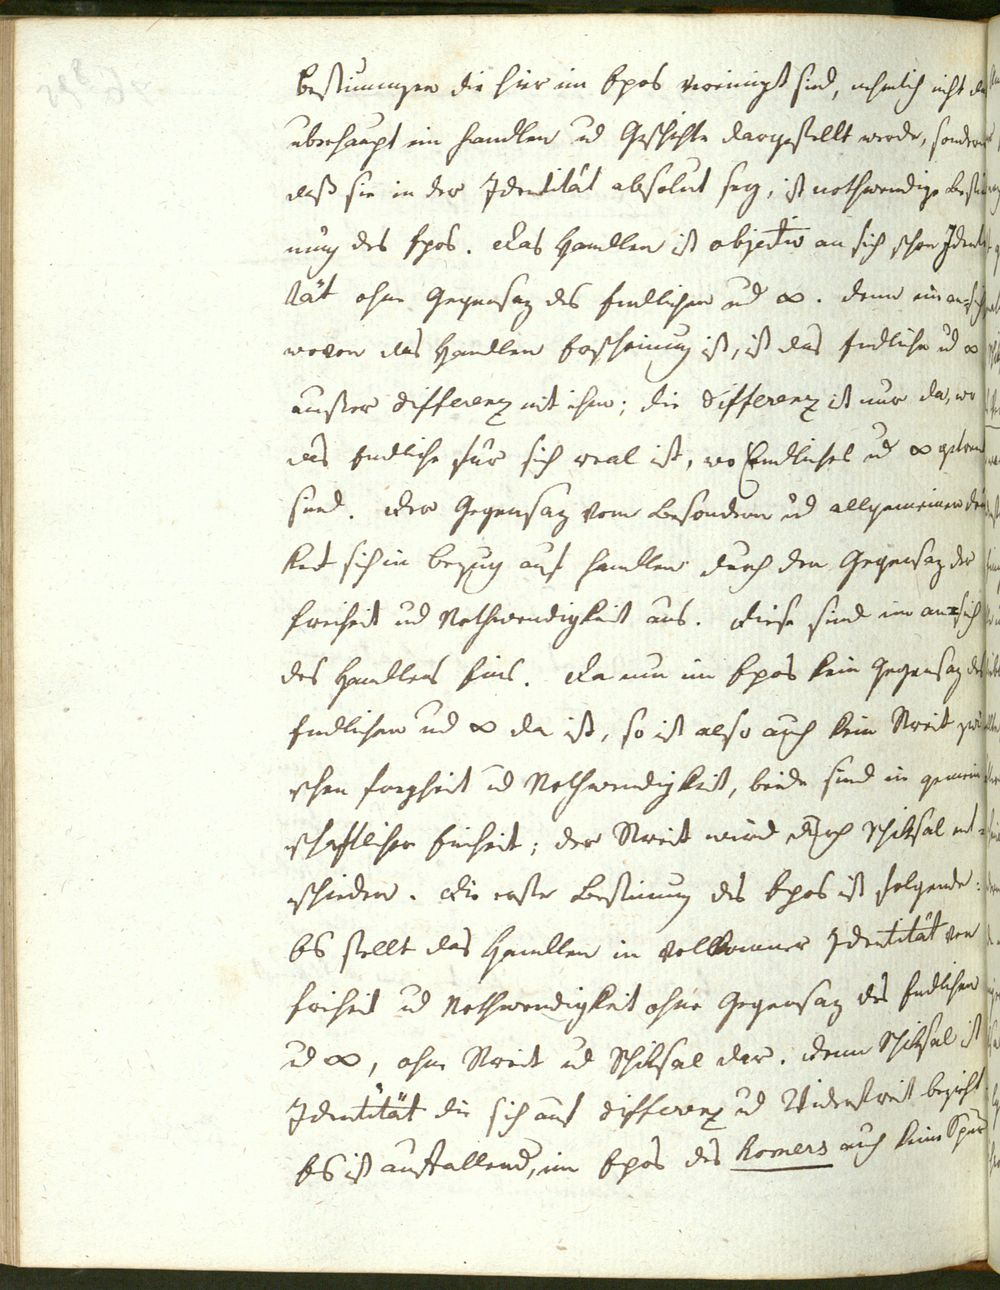 Bestimungen die hier im Epos vereinigt sind, nehmlich nicht daß
überhaupt ein Handlen ud Geschichte dargestellt werde, sondern
daß sie in der Identität absolut sey, ist nothwendige Bestim
mung des Epos. Das Handlen ist objectiv an sich schon Identi
tät ohne Gegensaz des Endlichen ud ∞. denn im an=sich
wovon das Handlen Erscheinung ist, ist das Endliche ud ∞
auster Differenz mit ihm; die Differenz ist nur da, wo
das Endliche für sich real ist, wo Endliches ud ∞ getrent
sind. Der Gegensaz vom Besondern ud allgemeinen drü
ket sich in bezug auf Handlen durch den Gegensaz der
Freiheit ud Nothwendigkeit aus. Diese sind im an=sich
des Handlens Eins. Da nun im Epos kein Gegensaz des
Endlichen ud ∞ da ist, so ist also auch kein Streit zwi
schen Freyheit ud Nothwendigkeit, beide sind in gemein
schaftlicher Einheit; der Streit wird durch Schiksal ent=
schieden. Die erste Bestimung des Epos ist folgende:
Es stellt das Handlen in vollkomner Identität von
Freiheit ud Nothwendigkeit ohne Gegensaz des Endlichen
ud ∞, ohne Streit ud Schiksal dar. denn Schiksal ist
Identität die sich auf Differenz ud Widerstreit bezieht
Es ist auffallend, im Epos des Homers auch keine Spur